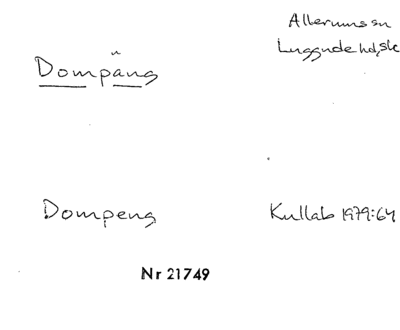 Dompäng
Allerums sn
Luggude hd, sk
Dompeng
Kullab 1979:64
Nr 21749